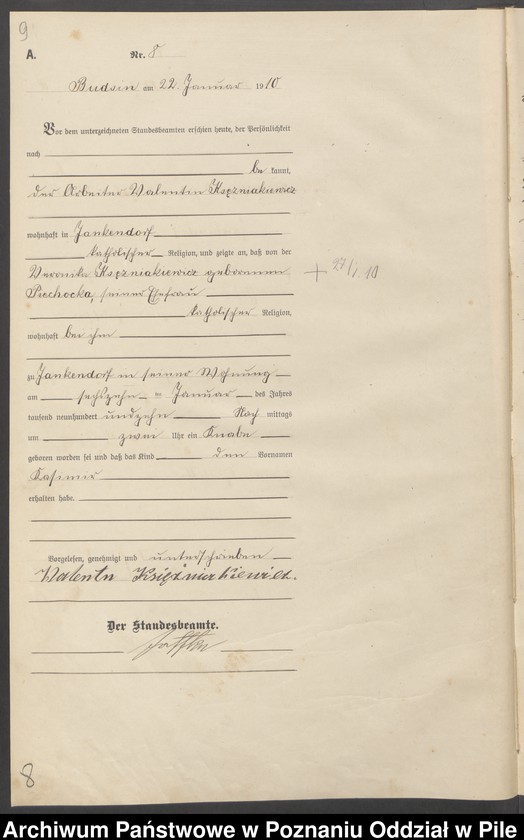 9
A.
Nr. 8
Budsin am 22. Januar 1910
Vor dem unterzeichneten Standesbeamten erschien heute, der Persönlichkeit
nach
be kannt,
der Arbeiter Valentin Ksęzniakiewicz
wohnhaft in Jankendorf
katholischer Religion, und zeigte an, daß von der
Veronika Ksęzniakiewicz geborenen
+ 27/1. 10
Piechocka, seiner Ehefrau
katholischer Religion,
wohnhaft bei ihm
zu Jankendorf in seiner Wohnung
am sechszehn ten Januar des Jahres
tausend neunhundert undzehn Nach mittags
um zwei Uhr ein Knabe
geboren worden sei und daß das Kind den Vornamen
Kasimir
erhalten habe.
Vorgelesen, genehmigt und unterschrieben
Walenty
Der Standesbeamte.
8
Archiwum Państwowe w Poznaniu Oddział w Pile